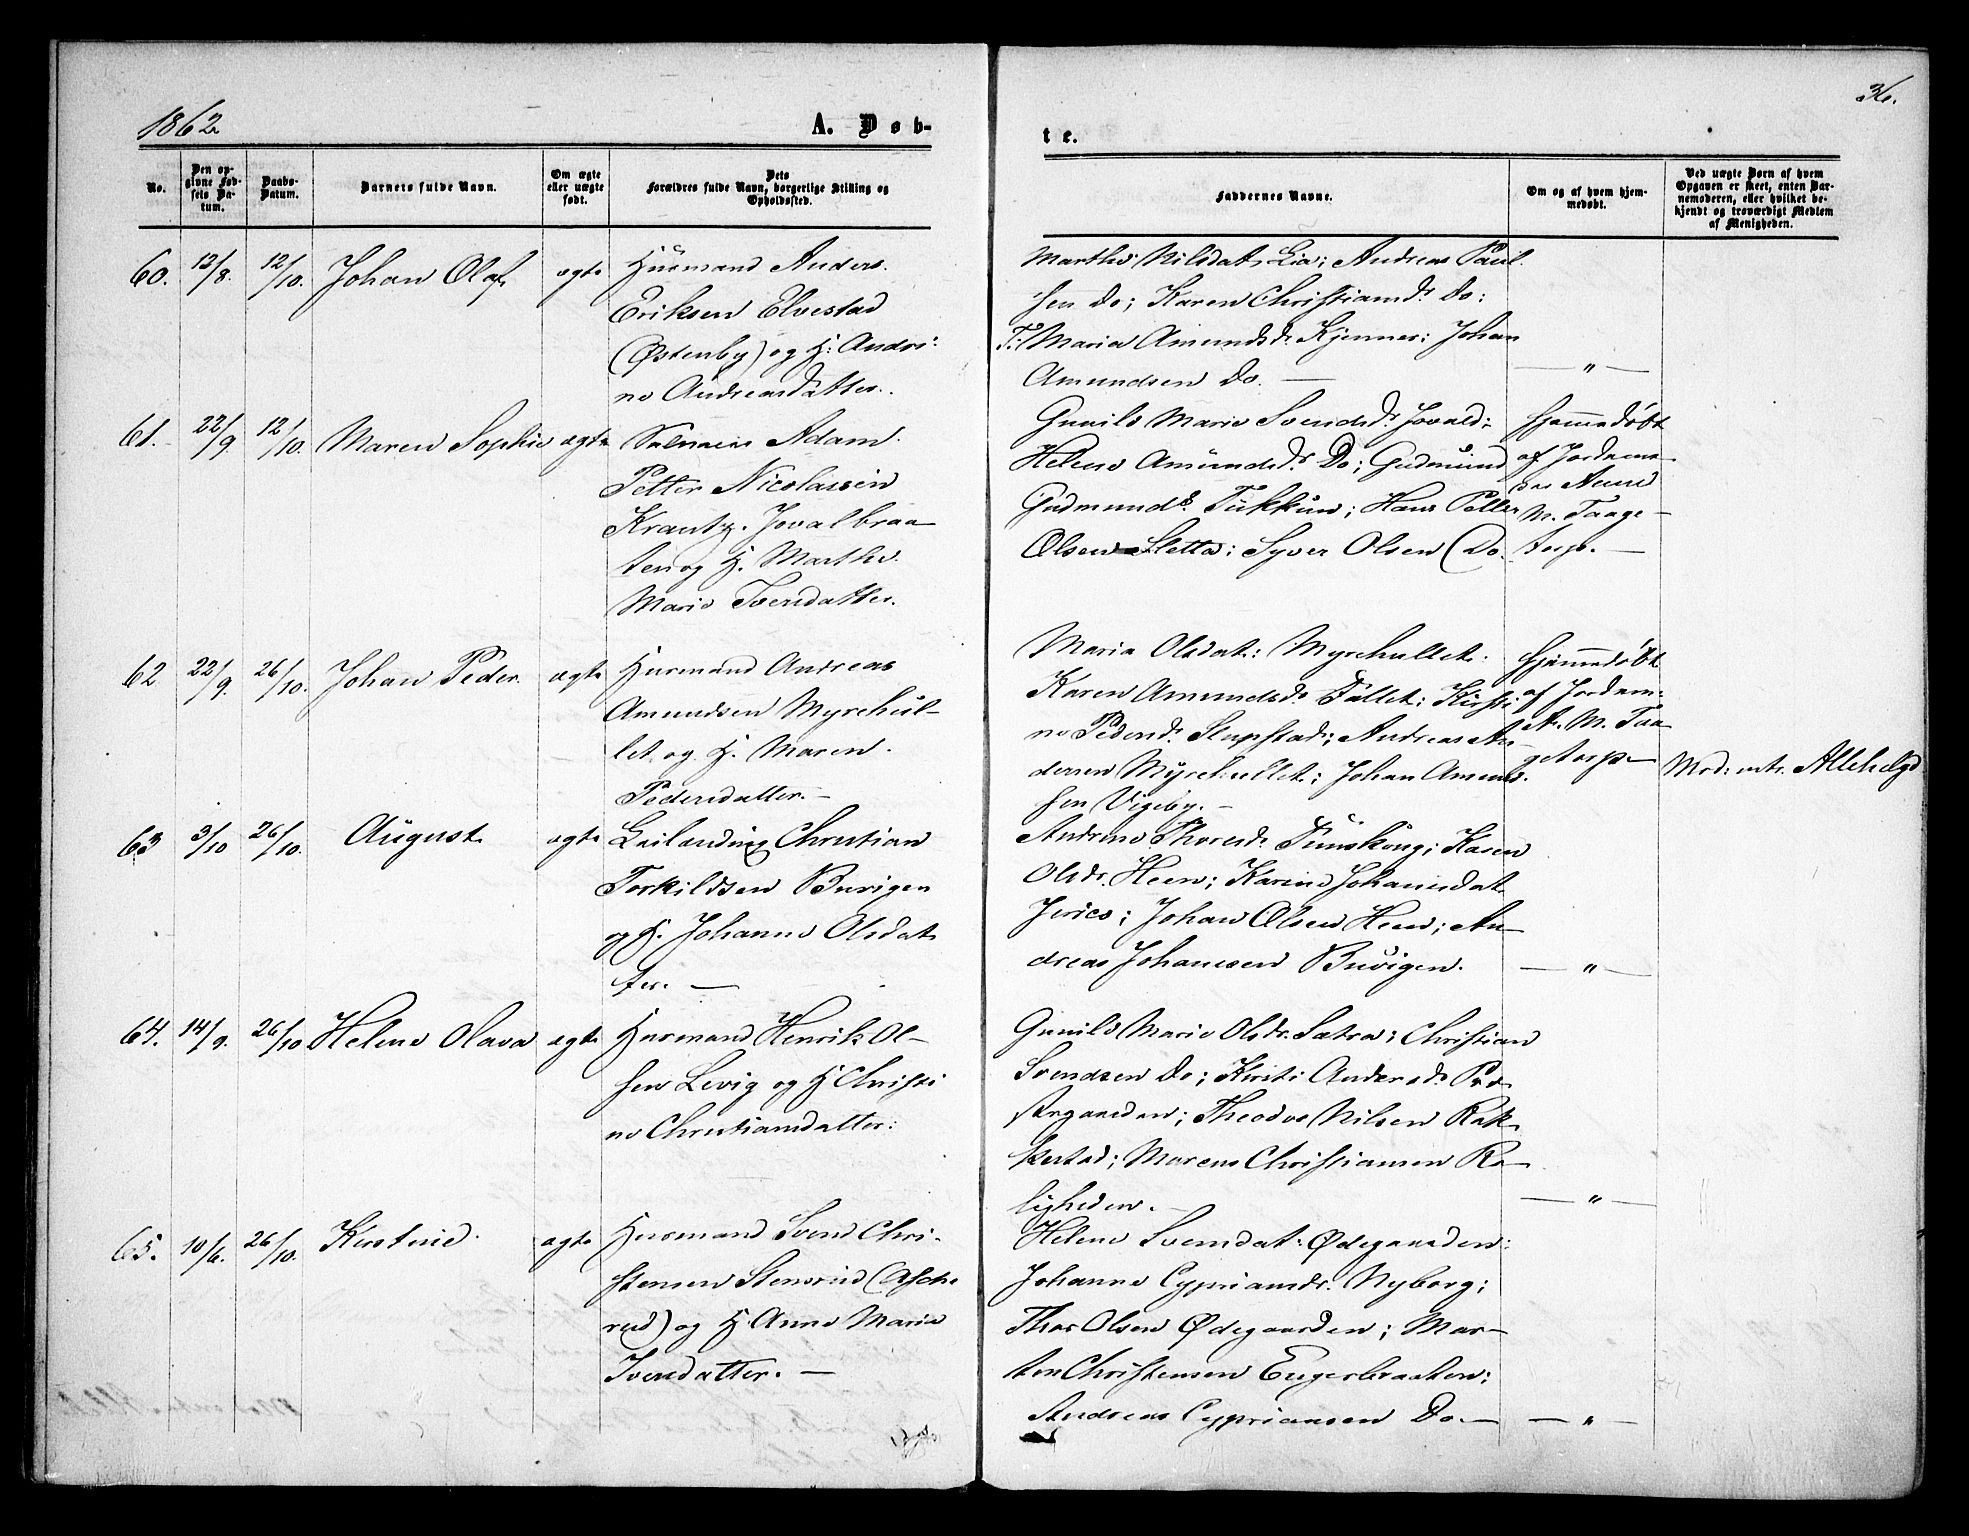 1862
A. Døb-
te.
36.
No.
Den op-
givne Fød-
sels Da-
tum.
Daabs-
Datum.
Barnets fulde Navn.
Om ægte
eller uægte
født.
Dets
Forældres fulde Navn, borgerlige Stilling og
Opholdssted.
Faddernes Navne.
Om og af hvem hjem-
medøbt.
Ved uægte Børn af hvem
Opgaven er skeet, enten Bar-
nemoderen, eller hvilket be-
kjendt og troværdigt Medlem
af Menigheden.
60. 13/8. 12/10. Johan Olaf. ægte
Husmand Anders
Eriksen Elvestad
(Østenby) og H: Andri-
ne Andreasdatter.
Marthe Nilsdat. Lia; Andreas Paul
sen Do; Karen Christiansd. Do;
T: Maria Amundsd. Kjennes; Johan
Amundsen Do. — „ —
61. 22/9. 12/10. Maren Sophie ægte
Adam
Petter Nicolaisen
Krantz. Jovalbraa-
ten og H. Marthe
Marie Iversdatter.
Gunild Marie Svendsd. Jovald;
Helene Amundsd. Do; Gudmund
Gudmunds. Tukkun; Hans Petter
Olsen Sletta; Syver Olsen (Do.
Hjemmedøbt
af Jordemo-
M. Taage-
torp. —
62 22/9. 26/10. Johan Peder. ægte
Husmand Andreas
Amundsen Myrehul-
let og H. Maren
Pedersdatter. —
Maria Olsdat: Myrehullet.
Karen Amundsd. Fallet; Kirsti
ne Pedersd. Slupstad; Andreas An-
dersen Myrehullet; Johan Amund-
sen Vigeby. —
Hjemmedøbt
af Jordem:
A. M. Taa-
getorp —
Mod: intr. Allehelgd
63 3/10 26/10. August ægte
Leilænding Christian
Torkildsen Buvigen
og H. Johanne Olsdat
ter. —
Andrine Thoresd. Funskoug; Karen
Olsdr. Heen; Karine Johannsdat.
Jerico; Johan Olsen Heen; An-
dreas Johanesen Buvigen. — „ —
64. 14/9. 26/10 Helene Olava ægte
Husmand Henrik Ol-
sen Levig og H Christi
ne Christiansdatter:
Gunild Marie Olsdr. Sätra; Christian
Svendsen Do; Kirsti Andersd. Præ
stegaarden; Theodor Nilsen Rak
kestad; Marcus Christiansen Ro-
ligheden. — „ —
65. 10/6. 26/10. Kirstine. ægte
Husmand Svend Chri-
stensen Stensrud (Asche
rud) og H Anne Marie
Iversdatter. —
Helene Svendsdat: Ødegaarden:
Johanne Cypriansdr. Nyborg;
Thor Olsen Ødegaarden; Mar-
ten Christensen Engerbraaten;
Andreas Cypriansen Do. — „ —